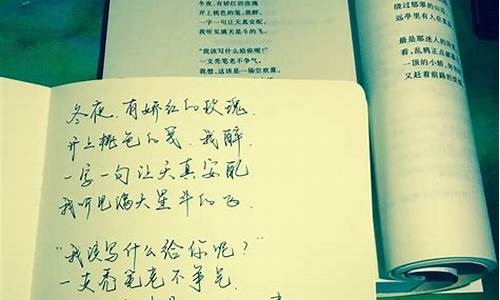 冬夜,有娇红的玫瑰
开上桃色的笺,我醉,
一字一句让天真安配,
我听见满天星斗的飞。
“我该写什么给你呢?”
一支秃笔老不争气,
我想,这该是一场空欢喜。
绕过郁翠的山
远亭里有人在
最是那迷人的
看,乱鸦正点破
一顶的小轿,
又赶着前路的
冬夜,有娇红的玫瑰,
开上桃色的笺,我醉,
一字一句让天真安配
我听见满天星斗的飞,
“我该写什么给你呢?”
一支秃笔老不争气,